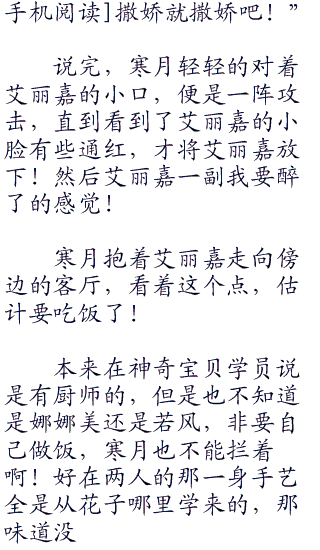 手机阅读]撒娇就撒娇吧！”
说完，寒月轻轻的对着
艾丽嘉的小口，便是一阵攻
击，直到看到了艾丽嘉的小
脸有些通红，才将艾丽嘉放
下！然后艾丽嘉一副我要醉
了的感觉！
寒月抱着艾丽嘉走向傍
边的客厅，看着这个点，估
计要吃饭了！
本来在神奇宝贝学员说
是有厨师的，但是也不知道
是娜娜美还是若风，非要自
己做饭，寒月也不能拦着
啊！好在两人的那一身手艺
全是从花子哪里学来的，那
味道没